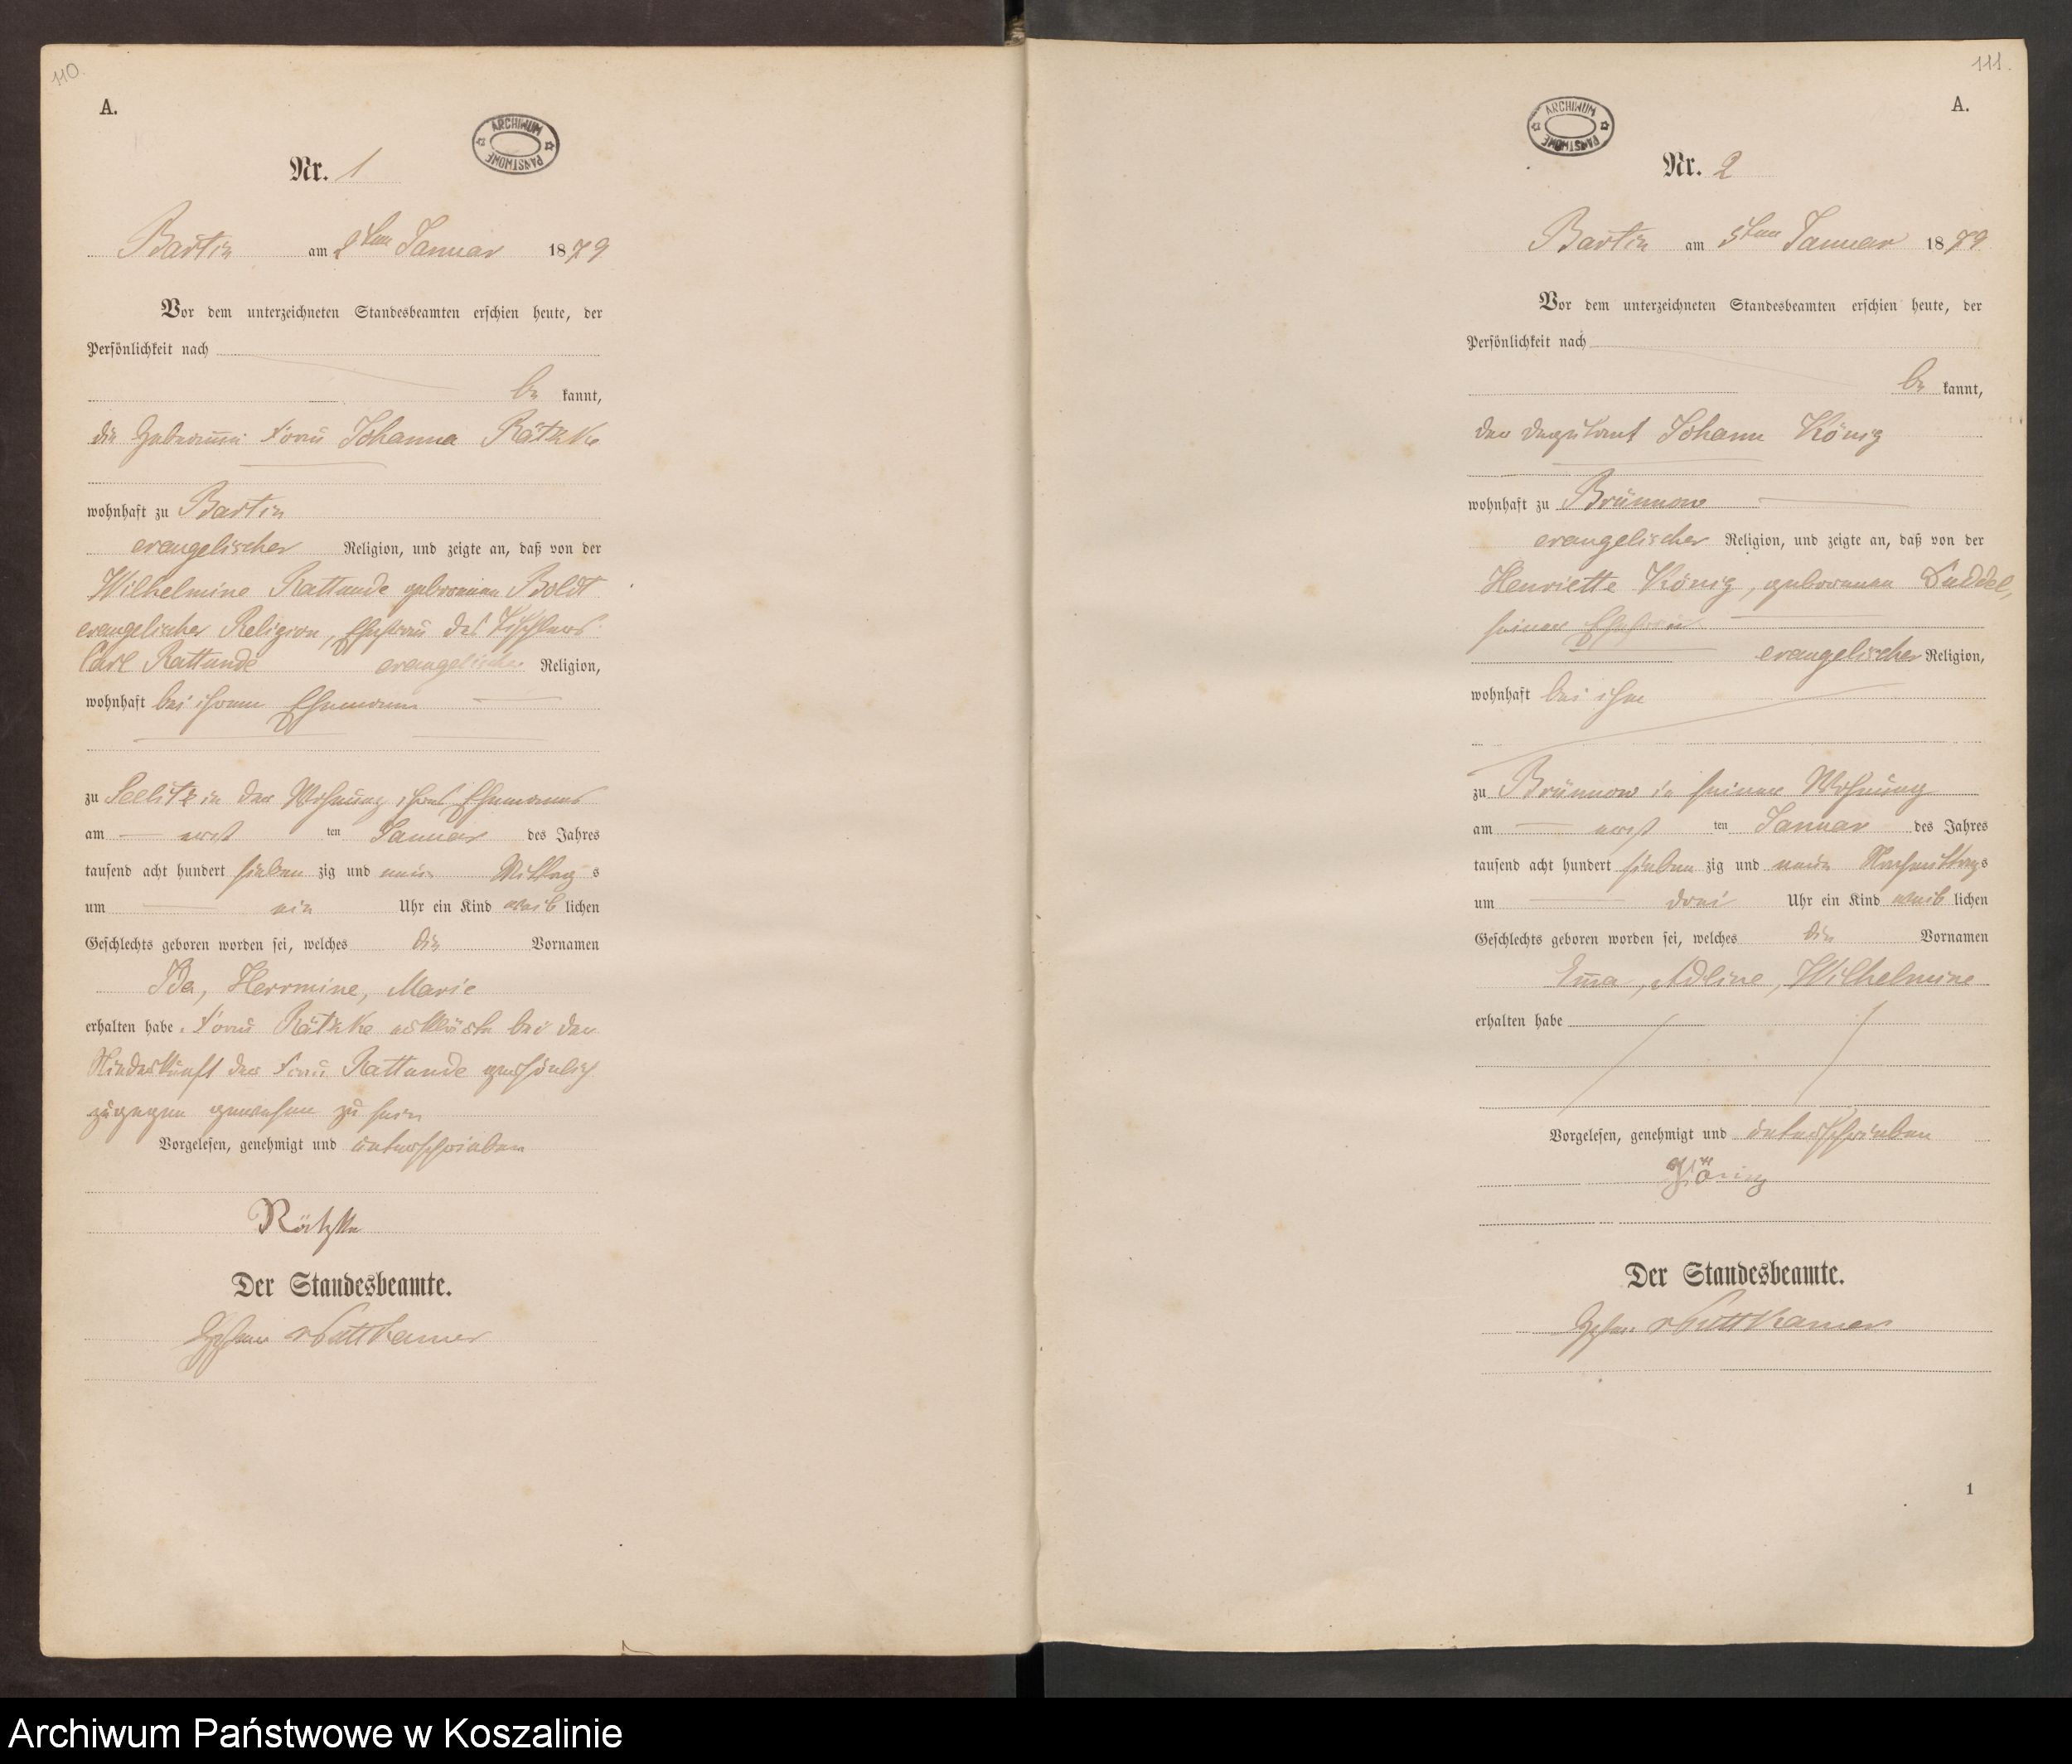 110.
A.
ARCHIWUM PAŃSTWOWE
Nr. 1
Bartin am 2ten Januar 1879
Vor dem unterzeichneten Standesbeamten erschien heute, der
Persönlichkeit nach
be kannt,
die Hebamme Frau Johanna Rätzke
wohnhaft zu Bartin
evangelischer Religion, und zeigte an, daß von der
Wilhelmine Rattunde geborenen Boldt
evangelischer Religion, Ehefrau des Tischlers
Carl Rattunde evangelischer Religion,
wohnhaft bei ihrem Ehemann
zu Seelitz in der Wohnung ihres Ehemannes
am erst ten Januar des Jahres
tausend acht hundert sieben zig und neun Mittag s
um ein Uhr ein Kind weib lichen
Geschlechts geboren worden sei, welches die Vornamen
Ida, Herrmine, Marie
erhalten habe. Frau Rätzke erklärte bei der
Niederkunft der Frau Rattunde persönlich
zugegen gewesen zu sein
Vorgelesen, genehmigt und unterschrieben
Rätzke
Der Standesbeamte.
Puttkamer
111.
A.
ARCHIWUM PAŃSTWOWE
Nr. 2
Bartin am 5ten Januar 1879
Vor dem unterzeichneten Standesbeamten erschien heute, der
Persönlichkeit nach
be kannt,
der Deputant Johann König
wohnhaft zu Brünnow
evangelischer Religion, und zeigte an, daß von der
Henriette König, geborenen Duddel,
seiner Ehefrau
evangelischer Religion,
wohnhaft bei ihm
zu Brünnow in seiner Wohnung
am erst ten Januar des Jahres
tausend acht hundert sieben zig und neun Nachmittag s
um drei Uhr ein Kind weib lichen
Geschlechts geboren worden sei, welches die Vornamen
Em̅a, Adline, Wilhelmine
erhalten habe
Vorgelesen, genehmigt und unterschrieben
König
Der Standesbeamte.
Puttkamer
1
Archiwum Państwowe w Koszalinie